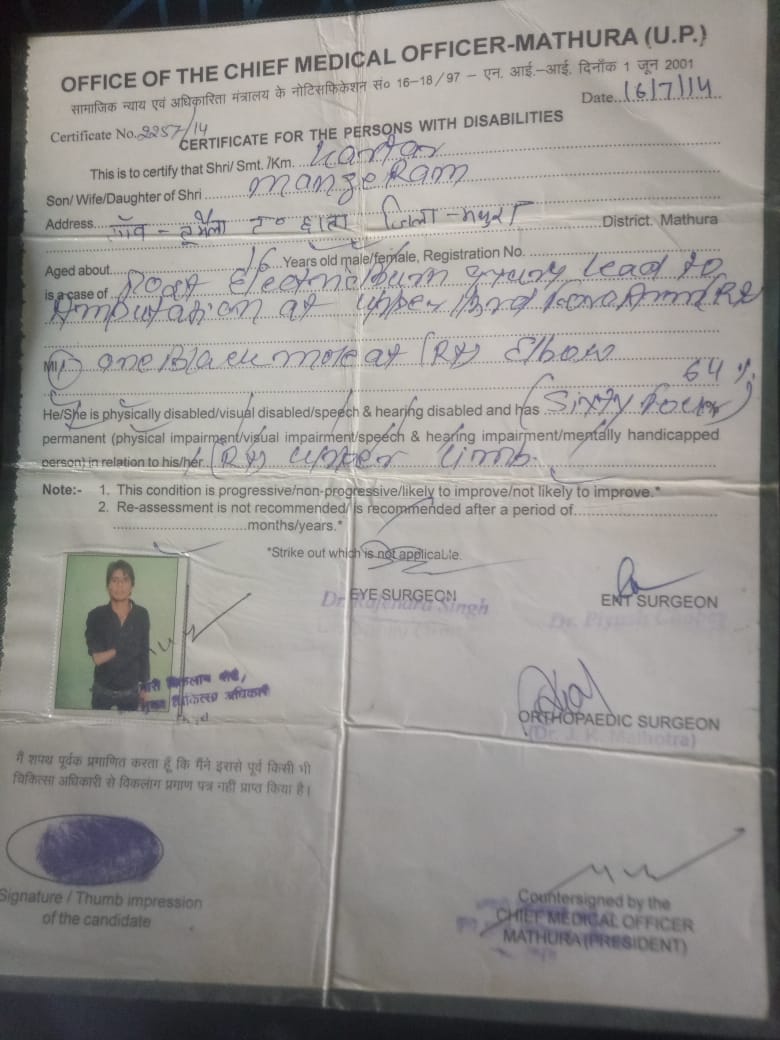 OFFICE OF THE CHIEF MEDICAL OFFICER-MATHURA (U.P.)
सामाजिक न्याय एवं अधिकारिता मंत्रालय के नोटिसफिकेशन सं० 16-18/97 – एन. आई.–आई. दिनाँक 1 जून 2001
Date. 16/7/14
Certificate No. 2257/14
CERTIFICATE FOR THE PERSONS WITH DISABILITIES
This is to certify that Shri/ Smt. /Km. Kartar
Son/ Wife/Daughter of Shri MangeRam
Address. जिला - मथुरा District. Mathura
Aged about 16 Years old male/female, Registration No.
is a case of Post lead to
Amputation at upper
MI ① one Black mole at (Rt) Elbow
64 %
He/She is physically disabled/visual disabled/speech & hearing disabled and has (Sixty Four)
permanent (physical impairment/visual impairment/speech & hearing impairment/mentally handicapped
person) in relation to his/her (Rt) upper limb.
Note:- 1. This condition is progressive/non-progressive/likely to improve/not likely to improve.*
2. Re-assessment is not recommended/ is recommended after a period of
months/years.*
*Strike out which is not applicable.
EYE SURGEON
Dr. Rajendra Singh
ENT SURGEON
Dr.
ORTHOPAEDIC SURGEON
(Dr. J. K. Malhotra)
मुख्य चिकित्सा अधिकारी
मैं शपथ पूर्वक प्रमाणित करता हूँ कि मैंने इससे पूर्व किसी भी
चिकित्सा अधिकारी से विकलांग प्रमाण पत्र नहीं प्राप्त किया है।
Signature / Thumb impression
of the candidate
Countersigned by the
CHIEF MEDICAL OFFICER
MATHURA (PRESIDENT)